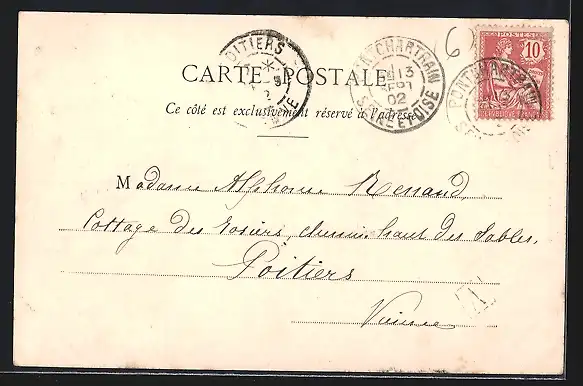 POITIERS
PONTCHARTRAIN
13
SEPT
02
SEINE ET OISE
6
POSTES
10
CARTE POSTALE
Ce côté est exclusivement réservé à l'adresse
Madame Alphonse Renaud,
Cottage des Rosiers, chemin haut des Sables,
Poitiers
Vienne